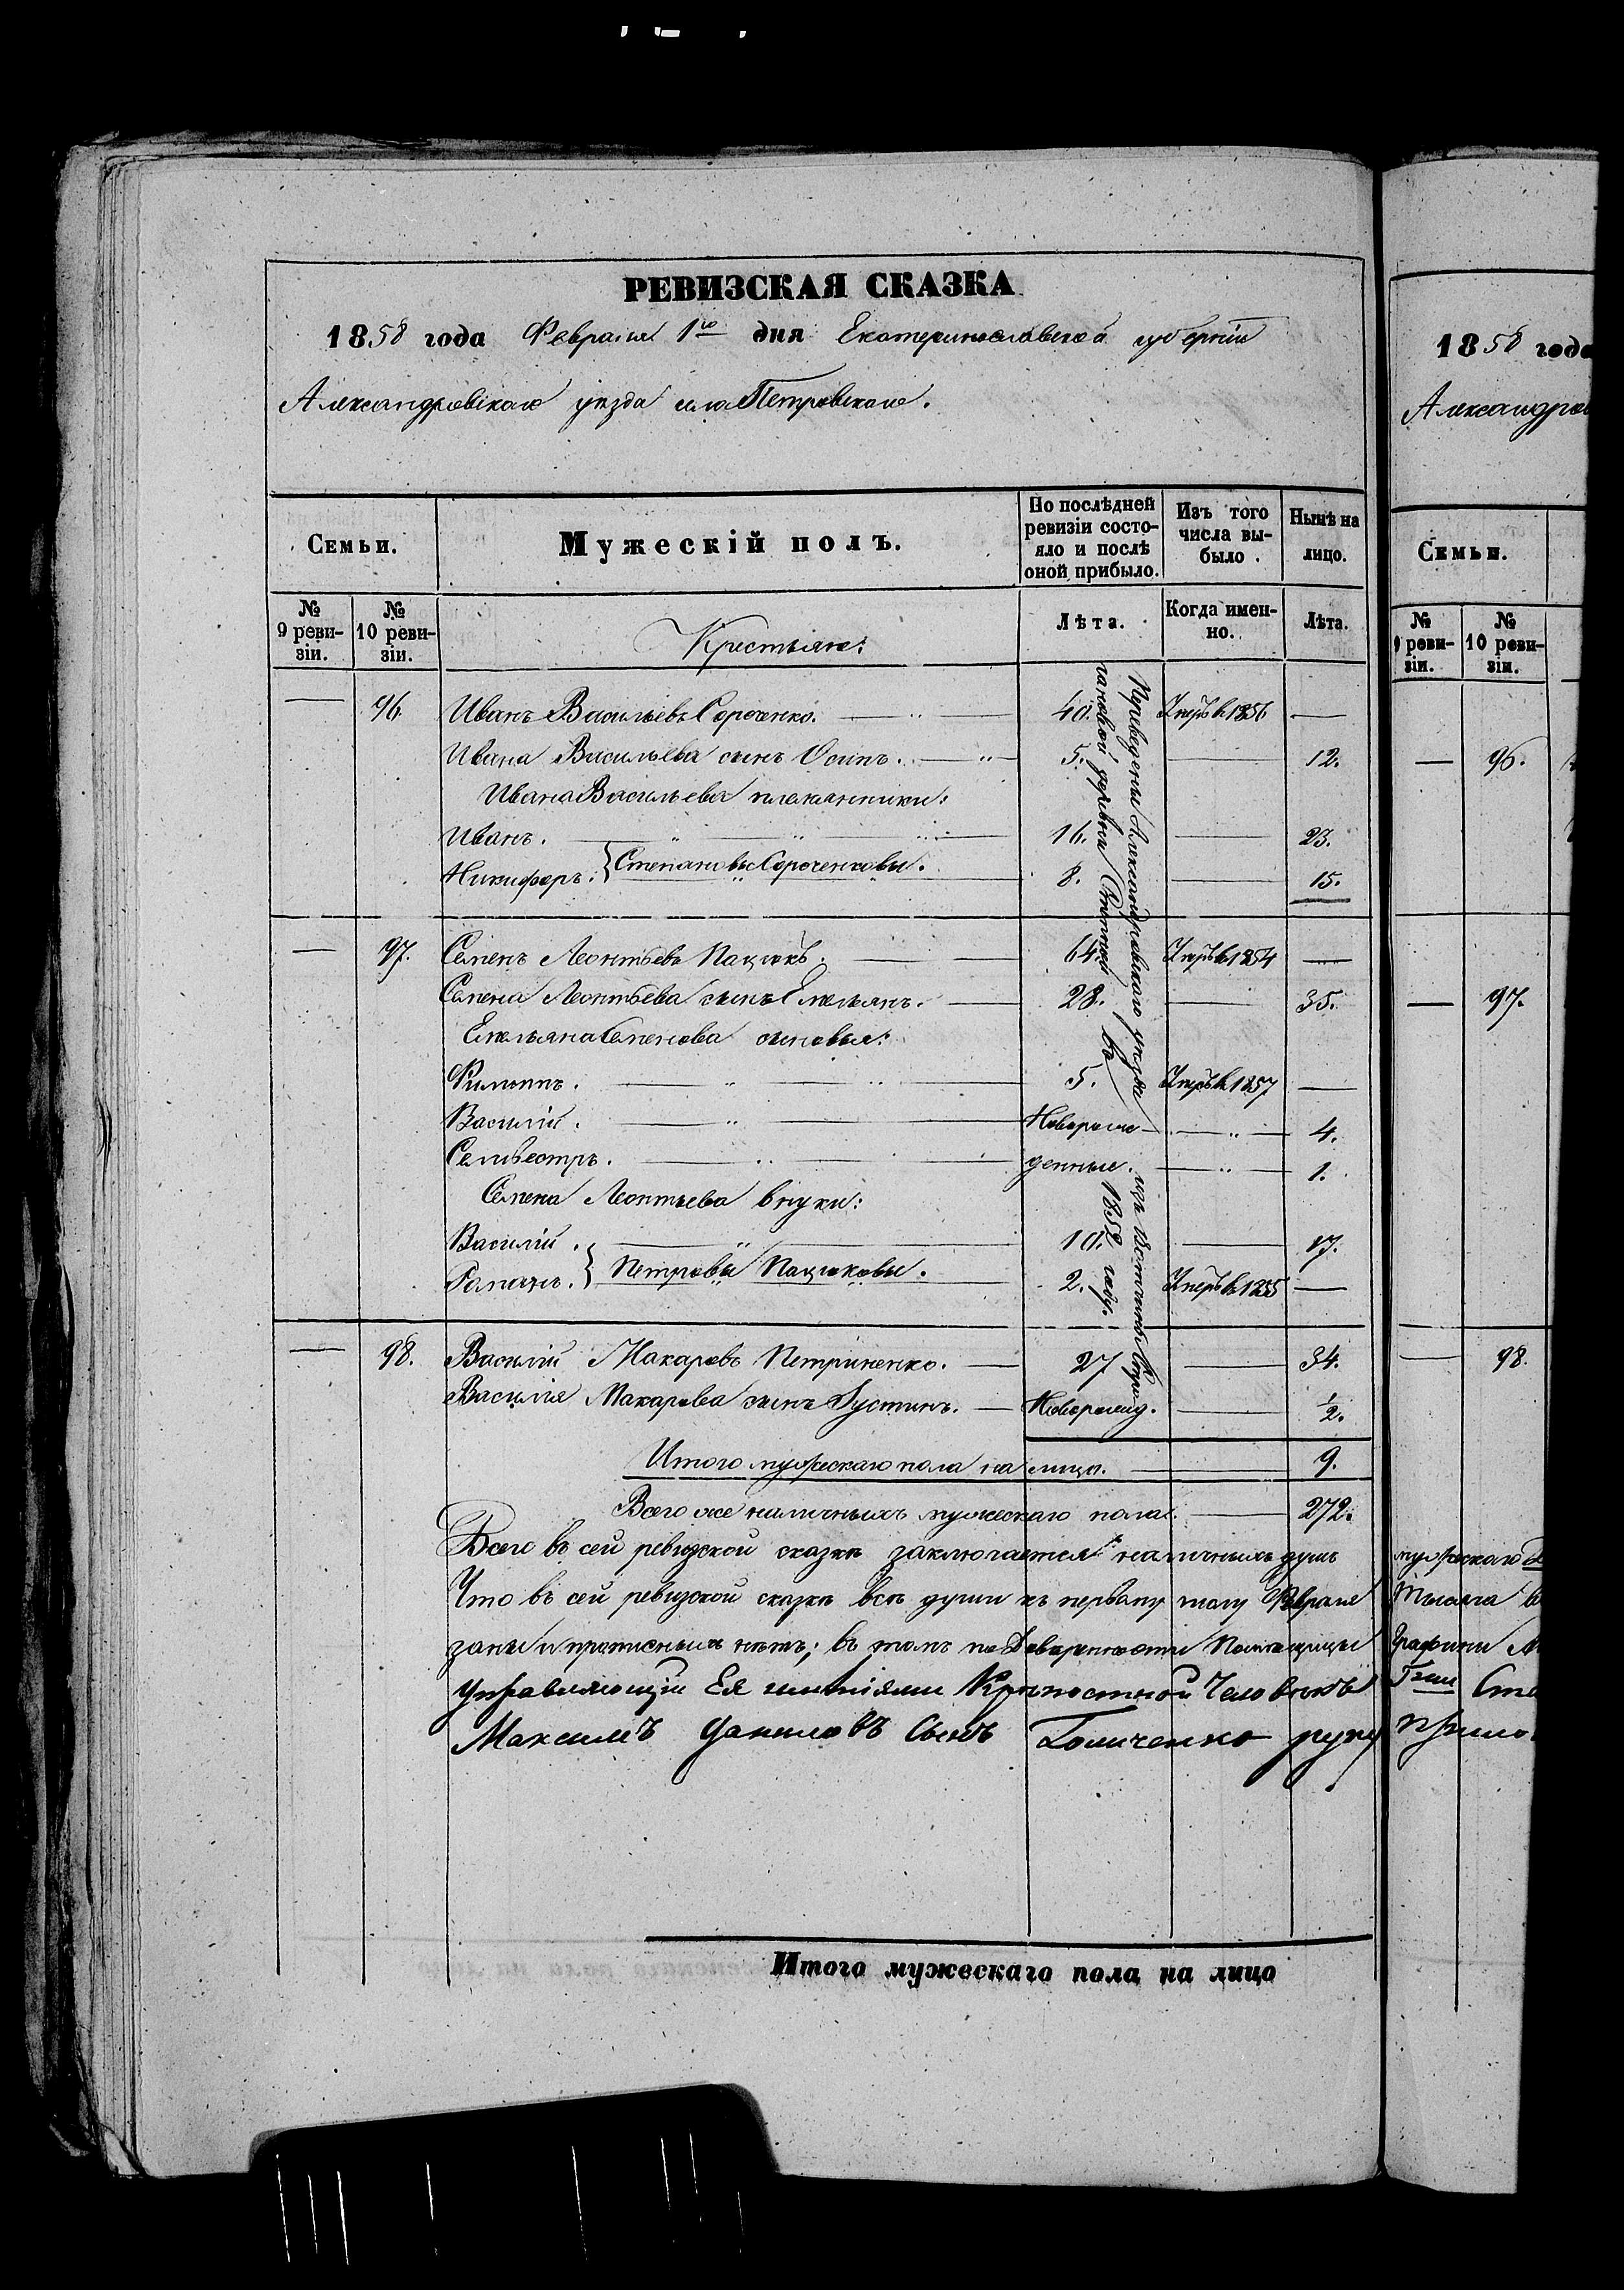 РЕВИЗСКАЯ СКАЗКА
1858 года Февраля 1го дня Екатеринославской губерніи
Александровскаго уѣзда села Петровскаго.
Семьи.
Мужескій полъ.
По послѣдней ревизіи состояло и послѣ оной прибыло.
Изъ того числа выбыло.
Нынѣ на лицо.
№ 9 ревизіи.
№ 10 ревизіи.
Крестьяне:
Лѣта.
Когда именно.
Лѣта.
Переведены Александровскаго уѣзда изъ вотчины
деревни Степной въ 1852 году.
— 96. Иванъ Васильевъ Сороченко. — 40. Умеръ въ 1856 —
Ивана Васильева сынъ Осипъ. — 5. — 12.
Ивана Васильева племянники:
Иванъ. — 16. — 23.
Никифоръ. } Степановы Сороченковы. 8. — 15.
— 97. Семенъ Леонтьевъ Пацюкъ. — 64 Умеръ въ 1854 —
Семена Леонтьева сынъ Емельянъ. — 28. — 35.
Емельяна Семенова сыновья:
Филиппъ. — 5. Умеръ въ 1857 —
Василій. — Новорож- — 4.
Селивестръ. — денные. — 1.
Семена Леонтьева внуки:
Василій. — 10. — 17.
Романъ. } Петровы Пацюковы. 2. Умеръ въ 1855 —
— 98. Василій Макаровъ Петриненко. — 27 — 34.
Василія Макарова сынъ Іустинъ. — Новорожд. — ½.
Итого мужескаго пола на лицо. — 9.
Всего же наличныхъ мужескаго пола: — 272.
Всего въ сей ревизской сказкѣ заключается наличныхъ душъ
Что въ сей ревизской сказкѣ всѣ души къ первому числу Февраля
заны и прописныхъ нѣтъ; въ томъ по Довѣренности Помѣщицы
Управляющій Ея имѣніями Крѣпостной Человѣкъ
Максимъ Даниловъ Сынъ Гомиченко руку
Итого мужескаго пола на лицо
1858 года
Александров
Семьи.
№ 9 ревизіи.
№ 10 ревизіи.
— 96.
— 97.
— 98.
мужескаго
Тысяча
Графини
прило